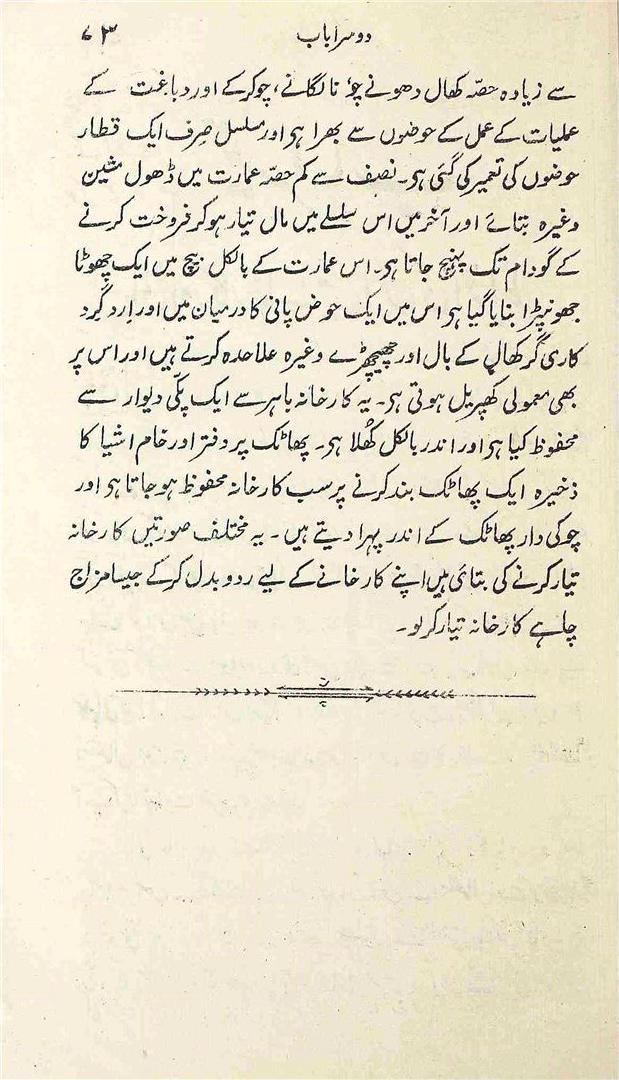 دوسرا باب ۷۳
سے زیادہ حصّہ کھال دھونے چوٗنا لگانے، چوکر کے اور دباغت کے
عملیات کے عمل کے حوضوں سے بھرا ہی اور مسلسل صِرف ایک قطار
حوضوں کی تعمیر کی گئی ہی۔ نصف سے کم حصّہ عمارت میں ڈھول مشین
وغیرہ بتائے اور آخر میں اس سلسلے میں مال تیار ہوکر فروخت کرنے
کے گودام تک پہنچ جاتا ہی۔ اس عمارت کے بالکل بیچ میں ایک چھوٹا
جھونپڑا بنایا گیا ہی اس میں ایک حوض پانی کا درمیان میں اور اِرد گِرد
کاری گر کھال کے بال اور چھیچھڑے وغیرہ علاحدہ کرتے ہیں اور اس پر
بھی معمولی کھپریل ہوتی ہی۔ یہ کارخانہ باہر سے ایک پکّی دیوار سے
محفوظ کیا ہی اور اندر بالکل کُھلا ہی۔ پھاٹک پر دفتر اور خام اشیا کا
ذخیرہ ایک پھاٹک بند کرنے پر سب کارخانہ محفوظ ہوجاتا ہی اور
چوکی دار پھاٹک کے اندر پہرا دیتے ہیں۔ یہ مختلف صورتیں کارخانہ
تیار کرنے کی بتائی ہیں اپنے کارخانے کے لیے ردو بدل کرکے جیسا مزاج
چاہے کارخانہ تیار کرلو۔